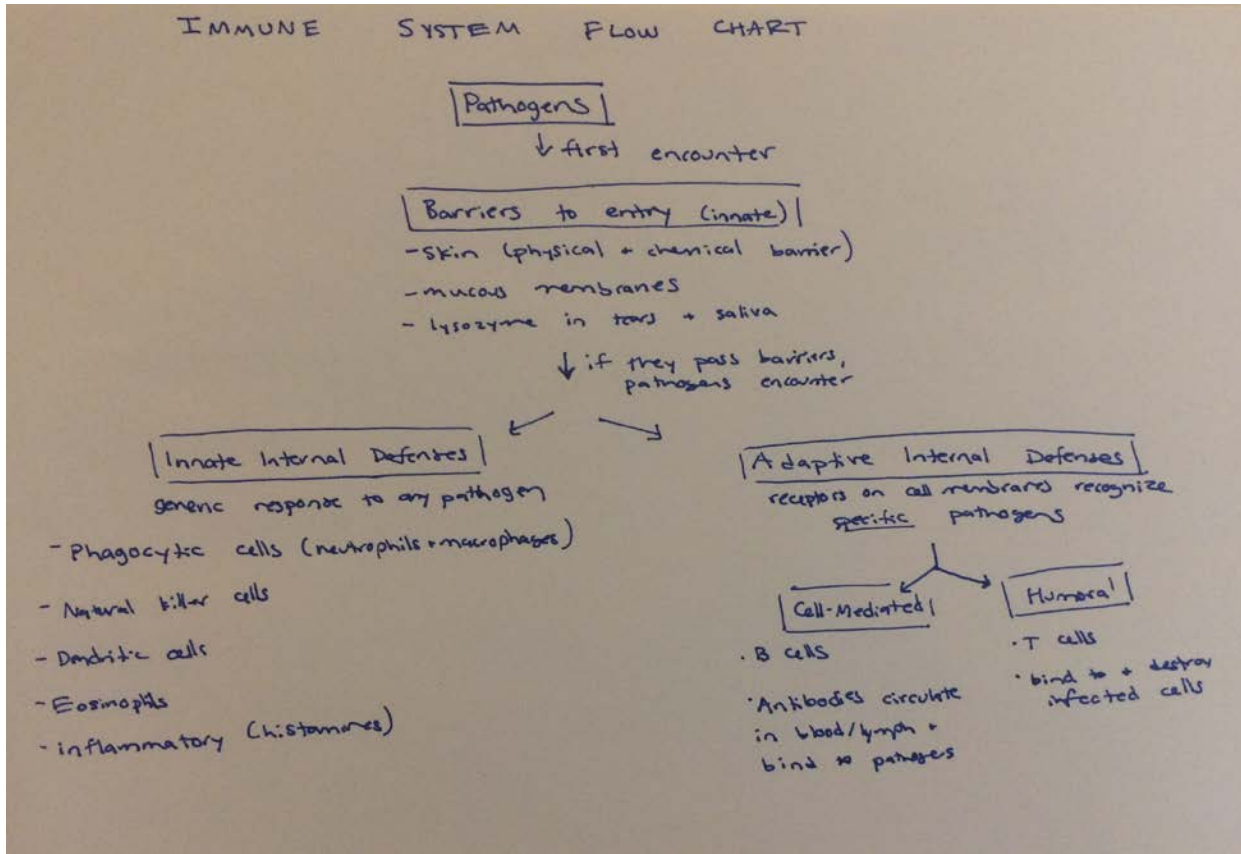 IMMUNE SYSTEM FLOW CHART
Pathogens
↓ first encounter
Barriers to entry (innate)
- Skin (physical + chemical barrier)
- mucous membranes
- lysozyme in tears + saliva
↓ if they pass barriers,
pathogens encounter
Innate Internal Defenses
generic response to any pathogen
- Phagocytic cells (neutrophils + macrophages)
- Natural killer cells
- Dendritic cells
- Eosinophils
- inflammatory (histamines)
Adaptive Internal Defenses
receptors on cell membranes recognize
specific pathogens
Cell-Mediated
· B cells
· Antibodies circulate
in blood/lymph +
bind to pathogens
Humoral
· T cells
· bind to + destroy
infected cells